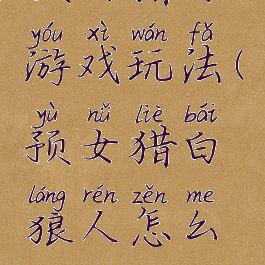 yóu xì wán fǎ
游戏玩法(
yù nǚ liè bái
预女猎白
láng rén zěn me
狼人怎么